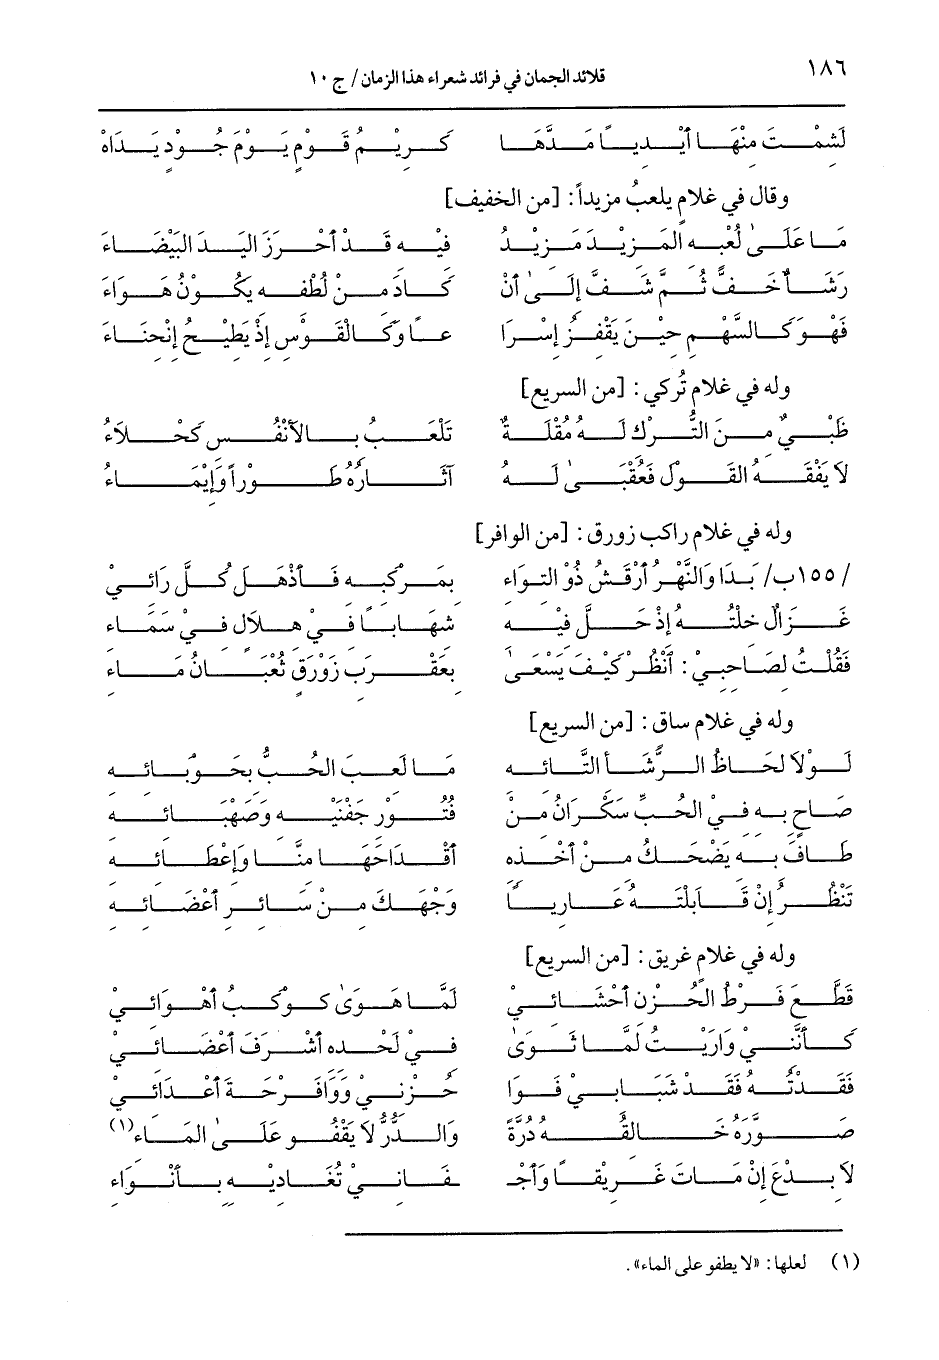 ١٨٦
قلائد الجمان في فرائد شعراء هذا الزمان / ج ١٠
لَشِمْتَ مِنْهَا أَيْدِياً مَدَّهَا كَرِيْمُ قَوْمٍ يَوْمَ جُوْدٍ يَدَاهْ
وقال في غلام يلعبُ مزيداً: [من الخفيف]
مَا عَلَىٰ لُعْبِهِ المَزِيْدَ مَزِيْدٌ فِيْهِ قَدْ أَحْرَزَ اليَدَ البَيْضَاءَ
رَشَأٌ خَفَّ ثُمَّ شَفَّ إِلَىٰ أَنْ كَادَ مِنْ لُطْفِهِ يَكُوْنُ هَوَاءَ
فَهْوَ كَالسَّهْمِ حِيْنَ يَقْفِزُ إِسْرَا عاً وَكَالْقَوْسِ إِذْ يَطِيْحُ إِنْحِنَاءَ
وله في غلام تُركي: [من السريع]
ظَبْيٌ مِنَ التُّرْكِ لَهُ مُقْلَةٌ تَلْعَبُ بِالأَنْفُسِ كَحْلاَءُ
لاَ يَفْقَهُ القَوْلَ فَعُقْبَىٰ لَهُ آثَارُهُ طَوْراً وَإِيْمَاءُ
وله في غلام راكب زورق: [من الوافر]
/ ١٥٥ب/ بَدَا وَالنَّهْرُ أَرْقَشُ ذُوْ التِوَاءِ بِمَرْكَبِهِ فَأَذْهَلَ كُلَّ رَائِيْ
غَزَالٌ خِلْتُهُ إِذْ حَلَّ فِيْهِ شِهَاباً فِيْ هِلاَلٍ فِيْ سَمَاءِ
فَقُلْتُ لِصَاحِبِيْ: أُنْظُرْ كَيْفَ يَسْعَىٰ بِعَقْرَبِ زَوْرَقٍ ثُعْبَانُ مَاءِ
وله في غلام ساق: [من السريع]
لَوْلاَ لِحَاظُ الرَّشَأِ التَّائِهِ مَا لَعِبَ الحُبُّ بِحَوْبَائِهِ
صَاحٍ بِهِ فِيْ الحُبِّ سَكْرَانُ مِنْ فُتُوْرِ جَفْنَيْهِ وَصَهْبَائِهِ
طَافَ بِهِ يَضْحَكُ مِنْ أَخْذِهِ أَقْدَاحَهَا مِنَّا وَإِعْطَائِهِ
تَنْظُرُ إِنْ قَابَلْتَهُ عَارِياً وَجْهَكَ مِنْ سَائِرِ أَعْضَائِهِ
وله في غلامٍ غريق: [من السريع]
قَطَّعَ فَرْطُ الحُزْنِ أَحْشَائِيْ لَمَّا هَوَىٰ كَوْكَبُ أَهْوَائِيْ
كَأَنَّنِيْ وَارَيْتُ لَمَّا ثَوَىٰ فِيْ لَحْدِهِ أَشْرَفَ أَعْضَائِيْ
فَقَدْتُهُ فَقْدَ شَبَابِيْ فَوَا حُزْنِيْ وَوَافَرْحَةَ أَعْدَائِيْ
صَوَّرَهُ خَالِقُهُ دُرَّةً وَالدُّرُّ لاَ يَقْفُو عَلَىٰ المَاءِ(١)
لاَ بِدْعَ إِنْ مَاتَ غَرِيْقاً وَأَجْـ ـفَانِيْ تُغَادِيْهِ بِأَنْوَاءِ
(١) لعلها: «لا يطفو على الماء».